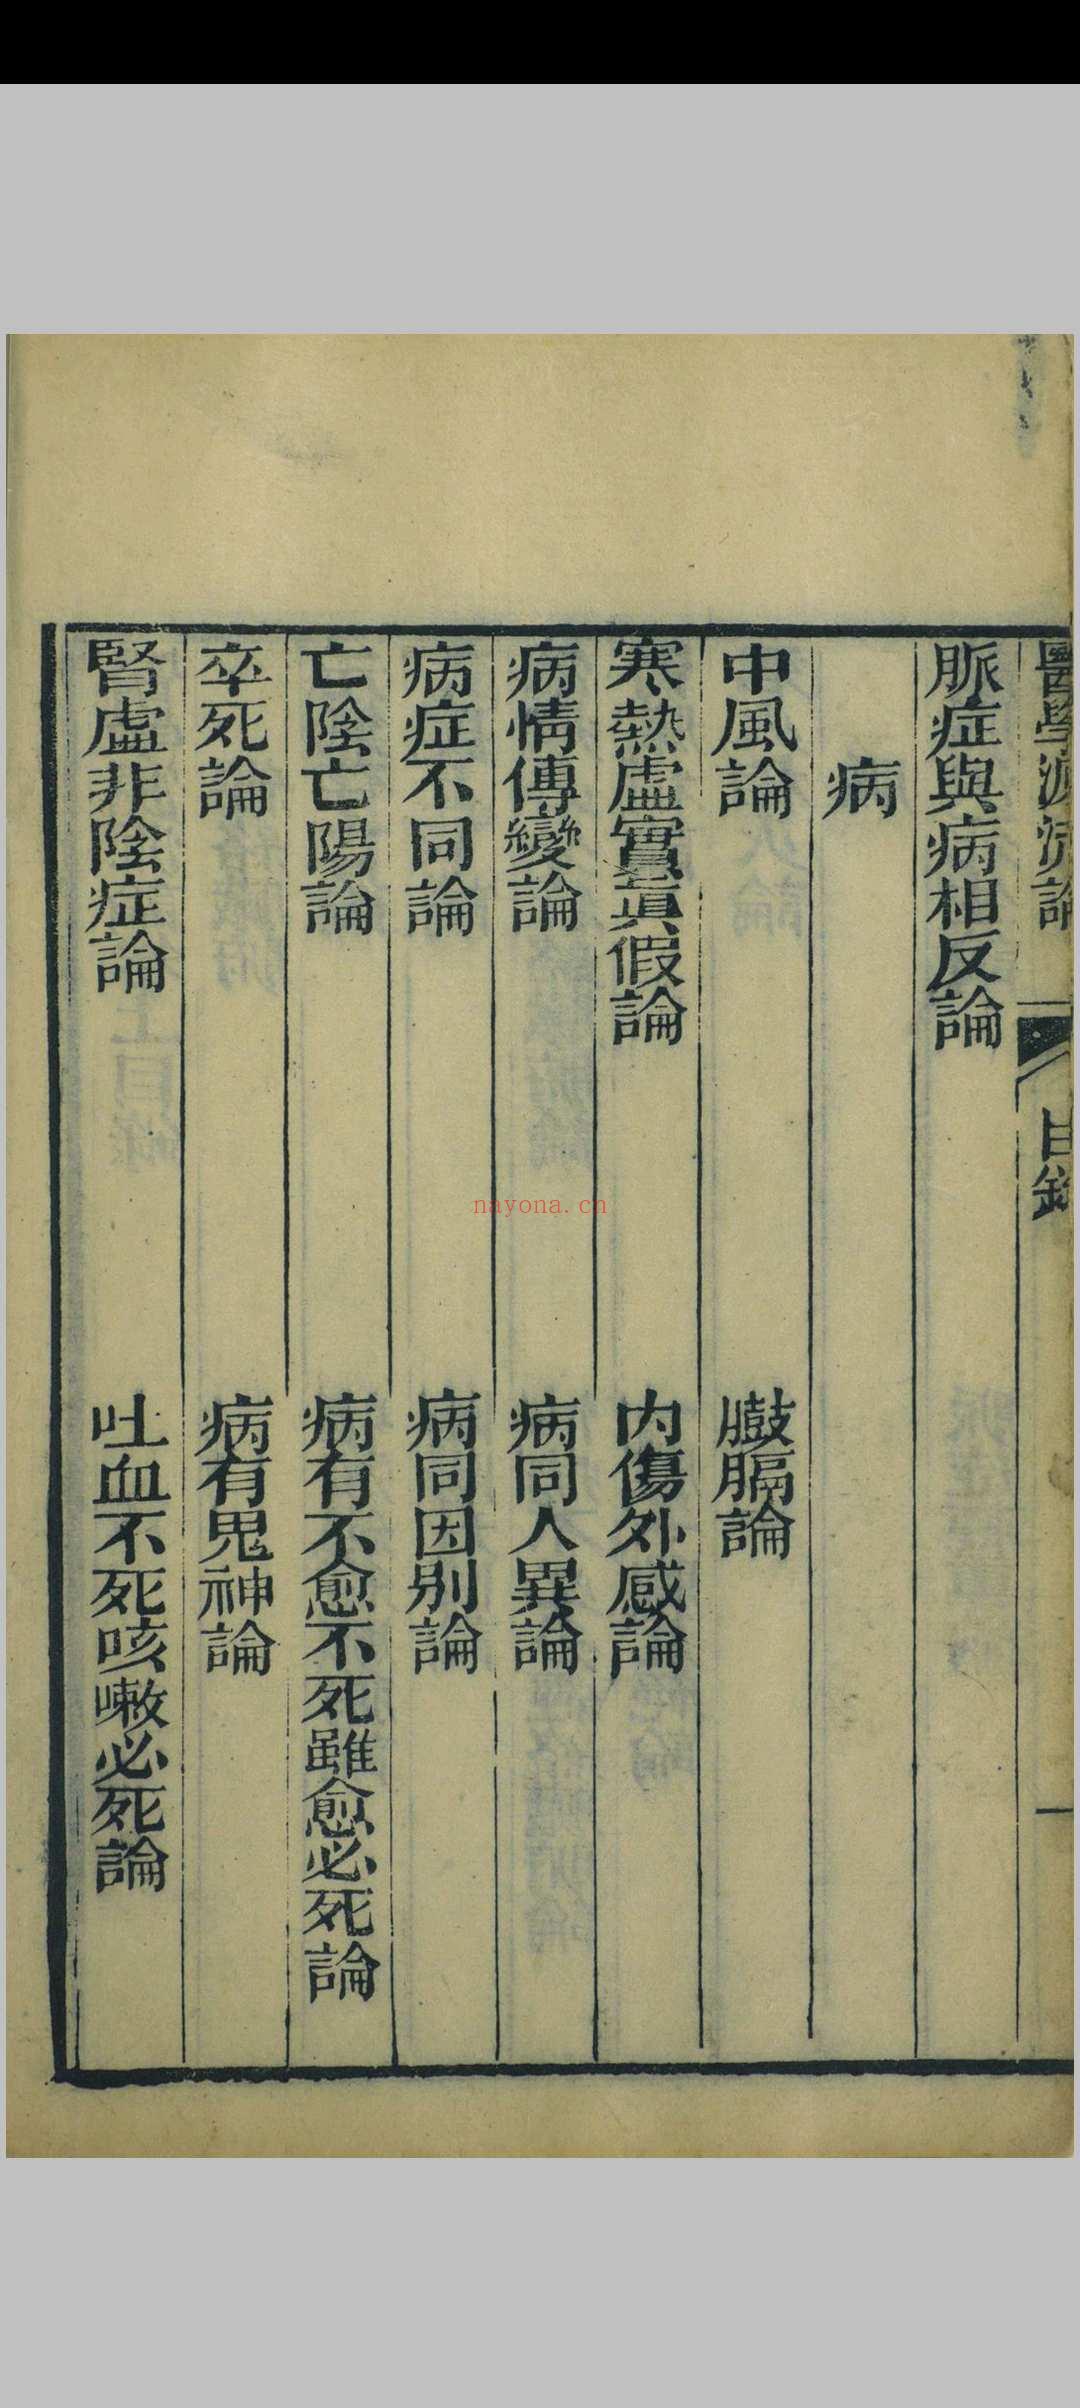 醫學源流論 目錄 一
脈症與病相反論
病
中風論 臌膈論
寒熱虛實眞假論 内傷外感論
病情傳變論 病同人異論
病症不同論 病同因别論
亡陰亡陽論 病有不愈不死雖愈必死論
卒死論 病有鬼神論
腎虛非陰症論 吐血不死咳嗽必死論
nayona.cn